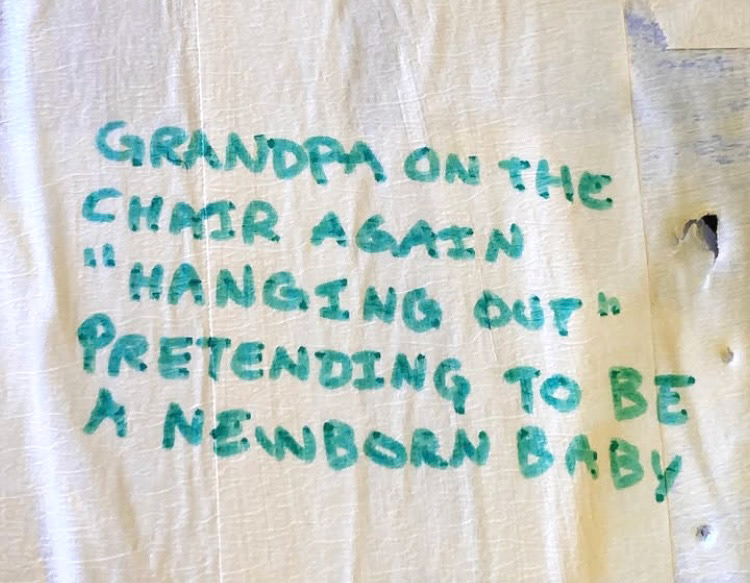 GRANDPA ON THE
CHAIR AGAIN
"HANGING OUT"
PRETENDING TO BE
A NEWBORN BABY